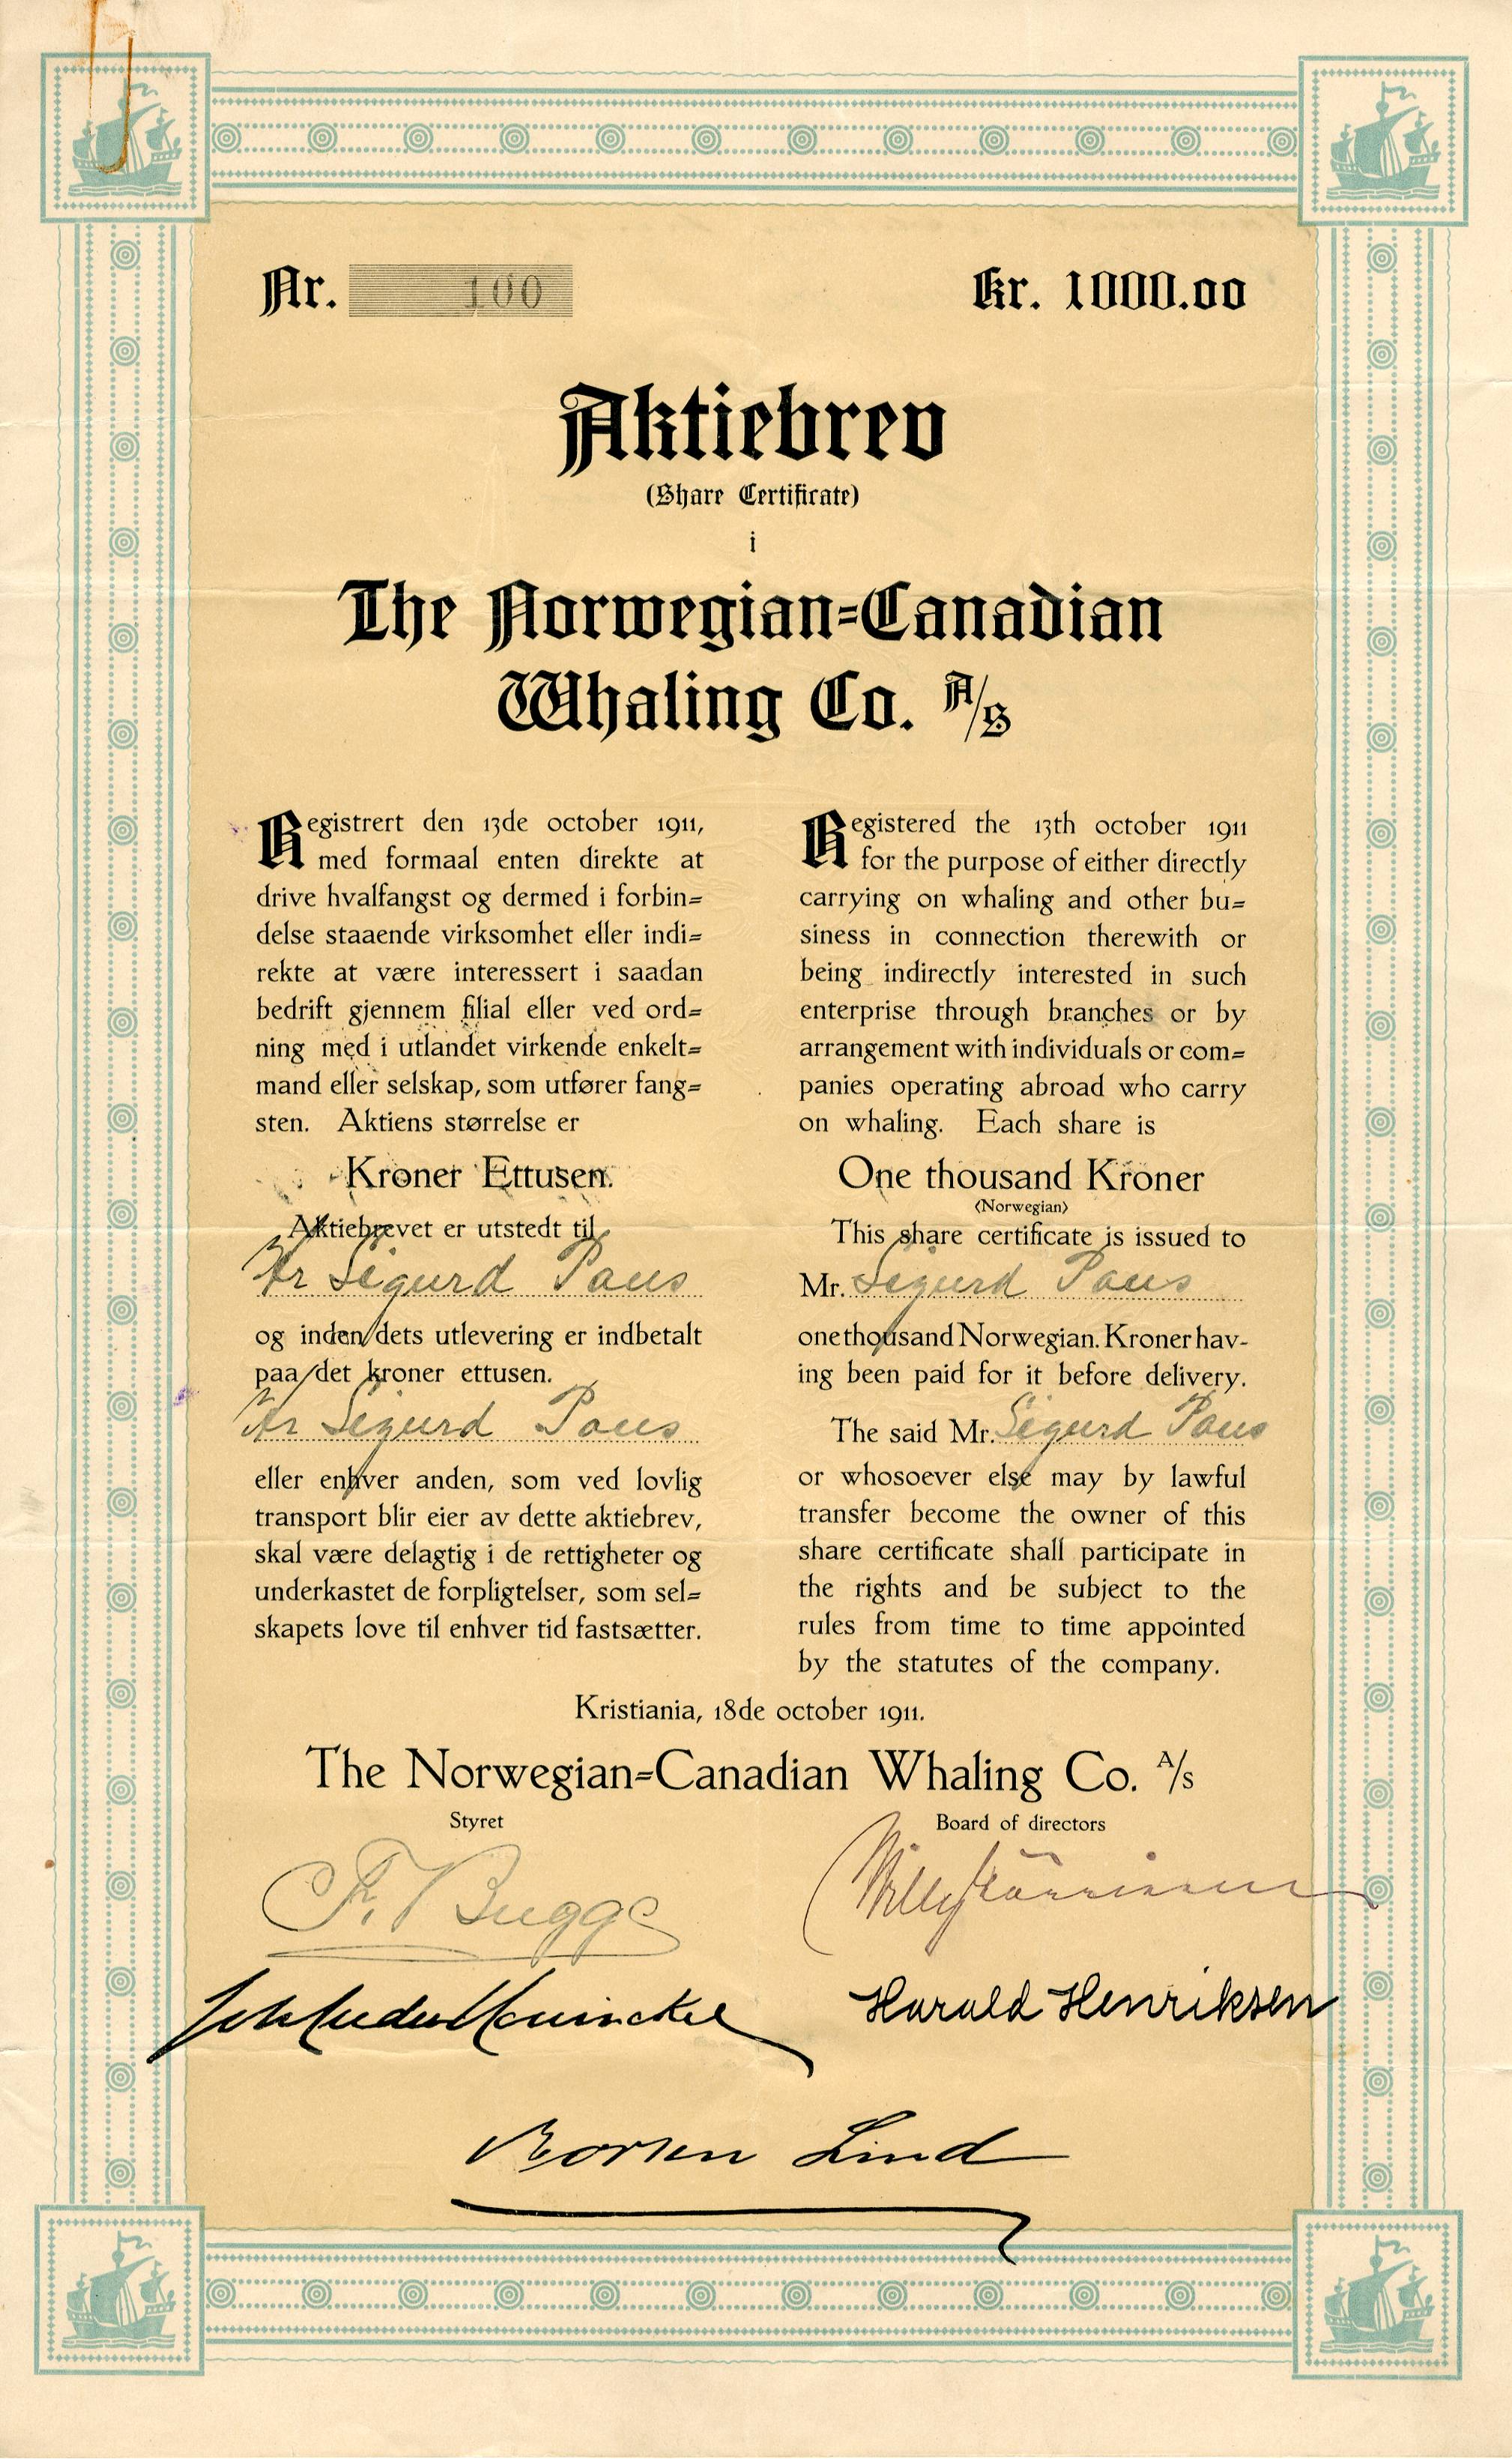 Nr. 100 Kr. 1000.00
Aktiebrev
(Share Certificate)
i
The Norwegian=Canadian
Whaling Co. A/S
Registrert den 13de october 1911,
med formaal enten direkte at
drive hvalfangst og dermed i forbin=
delse staaende virksomhet eller indi=
rekte at være interessert i saadan
bedrift gjennem filial eller ved ord=
ning med i utlandet virkende enkelt=
mand eller selskap, som utfører fang=
sten. Aktiens størrelse er
Kroner Ettusen.
Aktiebrevet er utstedt til
Hr Sigurd Paus
og inden dets utlevering er indbetalt
paa det kroner ettusen.
Hr Sigurd Paus
eller enhver anden, som ved lovlig
transport blir eier av dette aktiebrev,
skal være delagtig i de rettigheter og
underkastet de forpligtelser, som sel=
skapets love til enhver tid fastsætter.
Registered the 13th october 1911
for the purpose of either directly
carrying on whaling and other bu=
siness in connection therewith or
being indirectly interested in such
enterprise through branches or by
arrangement with individuals or com=
panies operating abroad who carry
on whaling. Each share is
One thousand Kroner
(Norwegian)
This share certificate is issued to
Mr. Sigurd Paus
one thousand Norwegian. Kroner hav-
ing been paid for it before delivery.
The said Mr. Sigurd Paus
or whosoever else may by lawful
transfer become the owner of this
share certificate shall participate in
the rights and be subject to the
rules from time to time appointed
by the statutes of the company.
Kristiania, 18de october 1911.
The Norwegian=Canadian Whaling Co. A/S
Styret
Board of directors
F. Bugge
Harald Henriksen
Lind